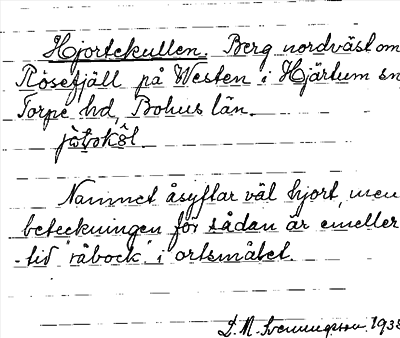 Hjortekullen. Berg nordväst om
Rösefjäll på Westen i Hjärtum sn
Torpe hd, Bohus län.
Namnet åsyftar väl hjort, men
beteckningen för sådan är emeller-
tid 'råbock' i ortsmålet.
D. M. Svenungsson 1938